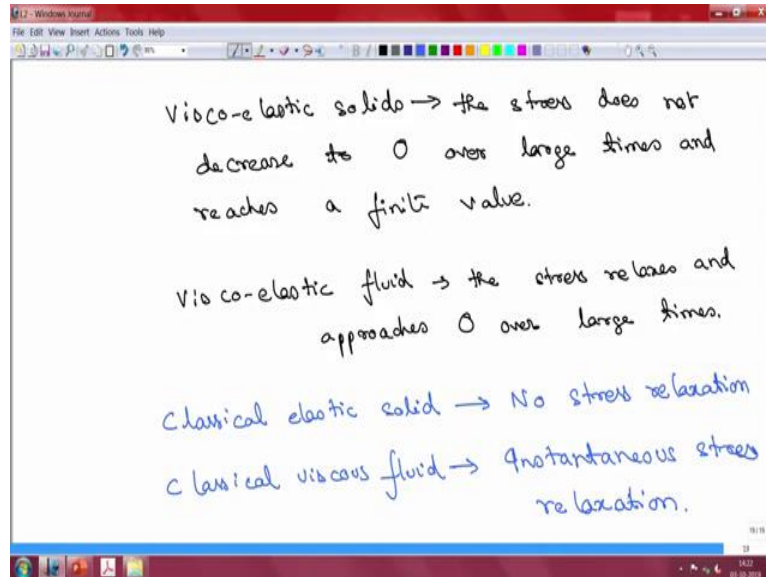 L2 - Windows Journal
File Edit View Insert Actions Tools Help
Visco-elastic solids → the stress does not
decrease to 0 over large times and
reaches a finite value.
Visco-elastic fluid → the stress relaxes and
approaches 0 over large times.
Classical elastic solid → No stress relaxation
Classical viscous fluid → Instantaneous stress
relaxation.
19/19
19
14:22